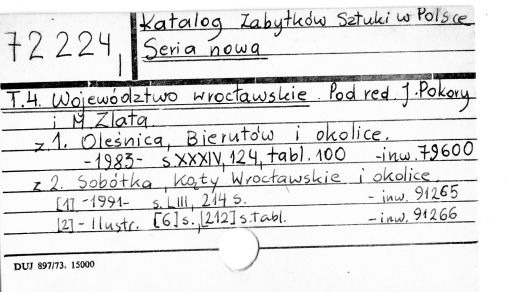 72 224,
Katalog Zabytków Sztuki w Polsce
Seria nowa
T.4. Województwo wrocławskie. Pod red. J. Pokory
i M Zlata
z 1. Oleśnica, Bierutów i okolice.
-1983- s XXXIV, 124, tabl. 100 -inw. 79600
z 2. Sobótka, Kąty Wrocławskie i okolice.
[1] -1991- s. LIII, 214 s. - inw. 91265
[2] - Ilustr. [6] s., [212] s. tabl. - inw. 91266
DUJ 897/73. 15000